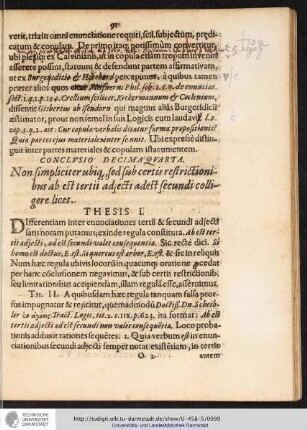 91
verit, tria in omni enunciatione requiri, scil. subjectum, prædi-
catum & copulam. De primo itaq; potissimum convertitur,
ubi plerisq; ex Calvinianis, ut in copula etiam tropum invenire
asserere possint, statuunt & defendunt partem affirmativam,
ut ex Burgersdicio & Hereboord percepimus, à quibus tamen
præter alios quos
dissentit Gisbertus ab Isendorn qui magnus aliàs Burgersdicii
æstimator, prout non semel in suis Logicis eum laudavit, l. 10.
cap. 5. q. 2. ait: Cur copula verbalis dicatur forma propositionis?
Quia partes ejus materiales inter se unit. Ubi expressè distin-
guit inter partes materiales & copulam istas unientem.
CONCLUSIO DECIMAQUARTA.
Non simpliciter ubiq;, sed sub certis restrictioni-
bus ab est tertii adjecti ad est secundi colli-
gere licet.
THESIS I.
Differentiam inter enunciationes tertii & secundi adjecti
satis notam putamus, exinde regula constituta. Ab est ter-
tii adjecti, ad est secundi valet consequentia. Sic rectè dici. Si
homo est doctus, E. est. Si quercus est arbor, E. est. & sic in reliquis
Num hæc regula ubivis locorum, quacunq; oratione procedat
per hanc cõclusionem negavimus, & sub certis restrictionib;
seu limitationibus accipiendam, illam regulã esse, asseruimus.
TH. II. A quibusdam hæc regula tanquam falsa pror-
sus impugnatur & rejicitur, quemadmodũ Doctiss. Dn. Scheib-
ler Tract. Logic. tit. 2. p. 623. ita format: Ab est
tertii adjecti ad est secundi non valet consequẽtia. Loco proba-
tionis adduxit rationes sequẽtes. 1. Quia verbum est in enun-
ciationibus secundi adjecti semper notat existẽtiam, in tertio
O 2 autem
TECHNISCHE
UNIVERSITÄT
DARMSTADT
http://tudigit.ulb.tu-darmstadt.de/show/U-456-5/0099
Universitäts- und Landesbibliothek Darmstadt